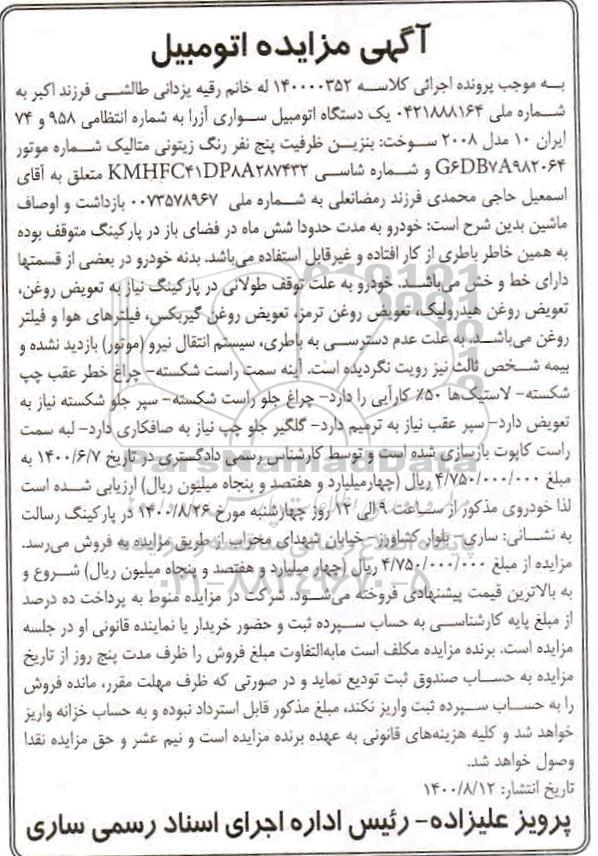 آگهی مزایده اتومبیل
به موجب پرونده اجرائی کلاسه ۱۴۰۰۰۰۳۵۲ له خانم رقیه یزدانی طالشی فرزند اکبر به
شماره ملی ۰۴۲۱۸۸۸۱۶۴ یک دستگاه اتومبیل سواری آزرا به شماره انتظامی ۹۵۸ و ۷۴
ایران ۱۰ مدل ۲۰۰۸ سوخت: بنزین ظرفیت پنج نفر رنگ زیتونی متالیک شماره موتور
G۶DB۷A۹۸۲۰۶۴ و شماره شاسی KMHFC۴۱DP۸A۲۸۷۴۳۲ متعلق به آقای
اسمعیل حاجی محمدی فرزند رمضانعلی به شماره ملی ۰۰۷۳۵۷۸۹۶۷ بازداشت و اوصاف
ماشین بدین شرح است: خودرو به مدت حدودا شش ماه در فضای باز در پارکینگ متوقف بوده
به همین خاطر باطری از کار افتاده و غیرقابل استفاده می‌باشد. بدنه خودرو در بعضی از قسمتها
دارای خط و خش می‌باشد. خودرو به علت توقف طولانی در پارکینگ نیاز به تعویض روغن،
تعویض روغن هیدرولیک، تعویض روغن ترمز، تعویض روغن گیربکس، فیلترهای هوا و فیلتر
روغن می‌باشد. به علت عدم دسترسی به باطری، سیستم انتقال نیرو (موتور) بازدید نشده و
بیمه شخص ثالث نیز رویت نگردیده است. آینه سمت راست شکسته- چراغ خطر عقب چپ
شکسته- لاستیک‌ها ۵۰٪ کارآیی را دارد- چراغ جلو راست شکسته- سپر جلو شکسته نیاز به
تعویض دارد- سپر عقب نیاز به ترمیم دارد- گلگیر جلو چپ نیاز به صافکاری دارد- لبه سمت
راست کاپوت بازسازی شده است و توسط کارشناس رسمی دادگستری در تاریخ ۱۴۰۰/۶/۷ به
مبلغ ۴/۷۵۰/۰۰۰/۰۰۰ ریال (چهارمیلیارد و هفتصد و پنجاه میلیون ریال) ارزیابی شده است
لذا خودروی مذکور از ساعت ۹ الی ۱۲ روز چهارشنبه مورخ ۱۴۰۰/۸/۲۶ در پارکینگ رسالت
به نشانی: ساری- بلوار کشاورز- خیابان شهدای محراب از طریق مزایده به فروش می‌رسد.
مزایده از مبلغ ۴/۷۵۰/۰۰۰/۰۰۰ ریال (چهار میلیارد و هفتصد و پنجاه میلیون ریال) شروع و
به بالاترین قیمت پیشنهادی فروخته می‌شود. شرکت در مزایده منوط به پرداخت ده درصد
از مبلغ پایه کارشناسی به حساب سپرده ثبت و حضور خریدار یا نماینده قانونی او در جلسه
مزایده است. برنده مزایده مکلف است مابه‌التفاوت مبلغ فروش را ظرف مدت پنج روز از تاریخ
مزایده به حساب صندوق ثبت تودیع نماید و در صورتی که ظرف مهلت مقرر، مانده فروش
را به حساب سپرده ثبت واریز نکند، مبلغ مذکور قابل استرداد نبوده و به حساب خزانه واریز
خواهد شد و کلیه هزینه‌های قانونی به عهده برنده مزایده است و نیم عشر و حق مزایده نقدا
وصول خواهد شد.
تاریخ انتشار: ۱۴۰۰/۸/۱۲
پرویز علیزاده- رئیس اداره اجرای اسناد رسمی ساری
ParsNamadData
۰۲۱-۸۸۳۴۹۶۷۰-۵